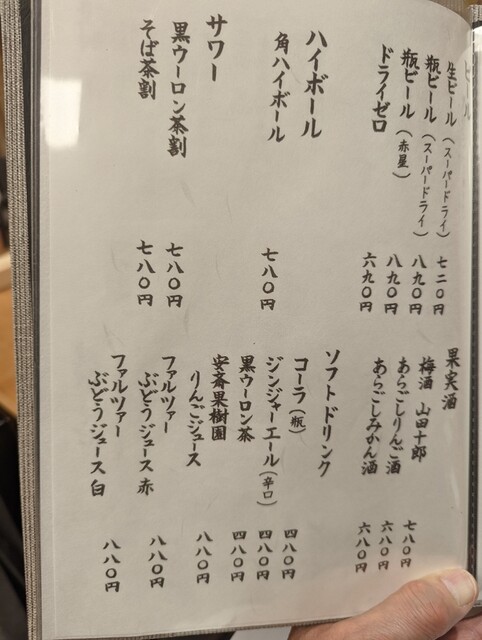 ビール
生ビール（スーパードライ） 七二〇円
瓶ビール（スーパードライ） 八九〇円
瓶ビール（赤星） 八九〇円
ドライゼロ 六九〇円
ハイボール
角ハイボール 七八〇円
サワー
黒ウーロン茶割 七八〇円
そば茶割 七八〇円
果実酒
梅酒 山田十郎 七八〇円
あらごしりんご酒 六八〇円
あらごしみかん酒 六八〇円
ソフトドリンク
コーラ（瓶） 四八〇円
ジンジャーエール（辛口） 四八〇円
黒ウーロン茶 四八〇円
安斎果樹園
りんごジュース 八八〇円
ファルツァー
ぶどうジュース 赤 八八〇円
ファルツァー
ぶどうジュース 白 八八〇円